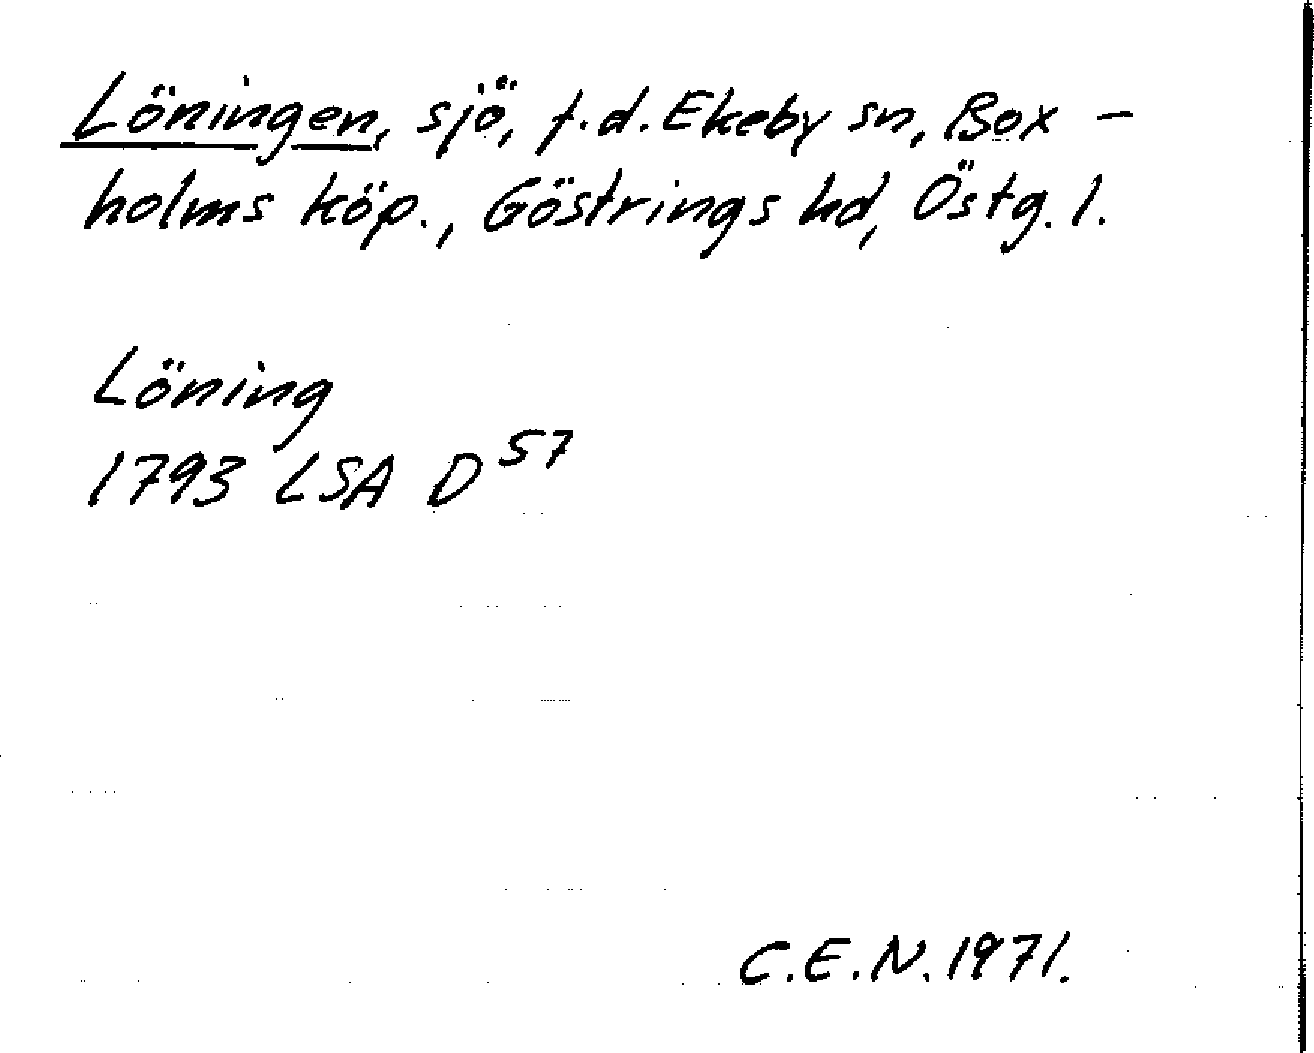 Löningen, sjö, f.d. Ekeby sn, Box-
holms köp., Göstrings hd, Östg. l.
Löning
1793 LSA D 57
C.E.N. 1971.